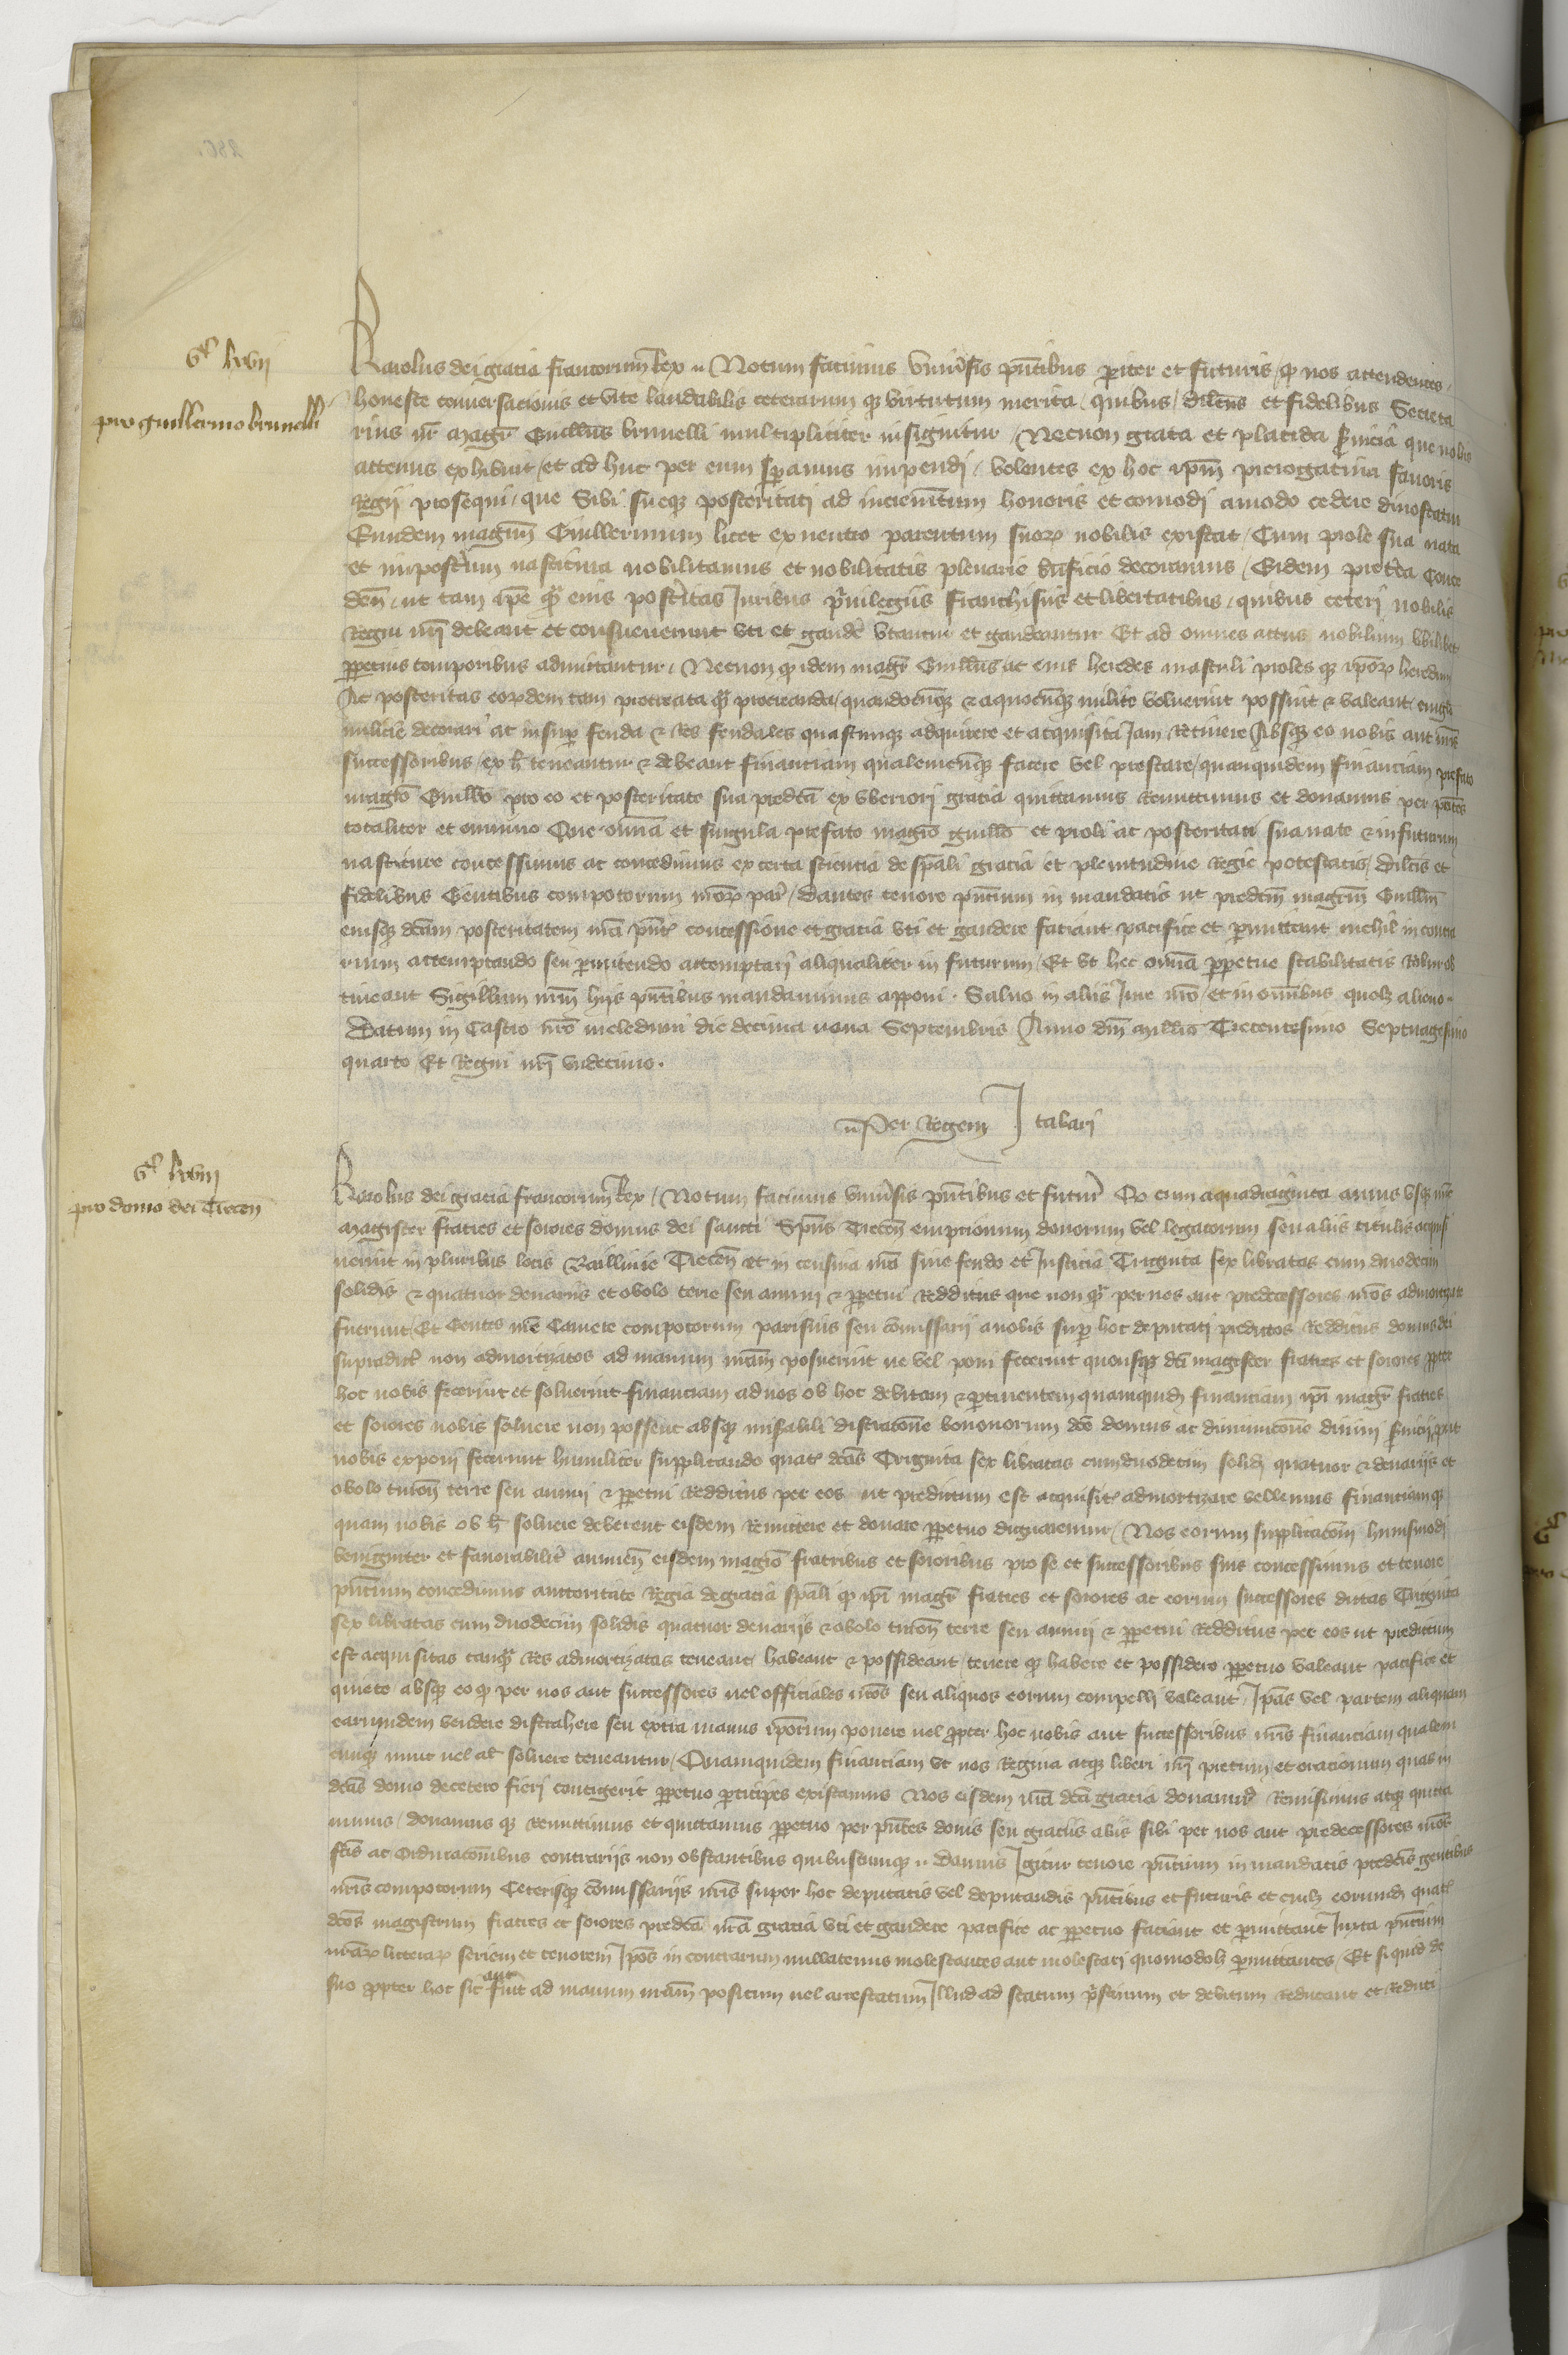 vᶜ lxvii
pro guillermo brunelli
Karolus dei gracia francorum Rex Notum facimus vniu̅sis pn̅tibus pariter et futuris / q̅ nos attendentes
honeste conuersacionis et vite laudabilis ceterarum qȝ virtutum merita / quibus / dilc̅us et fidelibus Secreta
rius nr̅ magr̅ Guill̅us brunelli multipliciter insignitur / Necnon grata et placida s̅uicia que nobis
attenus exhibuit / et ad huc per eum sp̅amus impendj / volentes ex hoc ip̅m prerogatiua fauoris
Regij prosequi / que Sibi sueqȝ posteritati ad incrementum honoris et comodj amodo cedere dinoscatur
Eundem magr̅m Guillermum licet ex neutro parentum suorꝝ nobilis existat / Cum prole sua nata
et inposteru̅ nascitura nobilitamus et nobilitatis plenarie bn̅ficio decoramus / Eidem pret̅ea Conce
den̅ / ut tam ip̅e qȝ eius post̅itas Juribus p̅uilegiis franchisiis et libertatibus / quibus ceteri nobiles
Regni nr̅j debeant et consueuerunt vti et gaude̅ vtantur et gaudeantur Et ad omnes actus nobilium vbilibet
perpetuis temporibus admittantur / Necnon qȝ idem magr̅ Guill̅us ac eius heredes masculi proles qȝ ip̅orꝝ heredum
Ac posteritas eorꝝdem tam procreata qȝ procreanda / quandocu̅qȝ & aquocu̅qȝ milite voluerint possint & valeant cingulo
militie̅ decorari ac insup̅ feuda & Res feudales quascunqȝ adquirere et acquisita Jam Retinere Absqȝ eo nobis aut nr̅is
successoribus / ex h̅ teneantur & debeant financiam qualemcu̅qȝ facere vel prestare / quamquidem financiam prefato
magr̅o Guill̅o pro eo et posteritate sua predc̅a ex vberiorj gracia quittamus Remittimus et donamus per pn̅tes
totaliter et omnino Que om̅ia et singula prefato magr̅o guill̅o et proli ac posteritati sua nate & infuturum
nasciture concessimus ac concedimus ex certa sciencia de spe̅ali gracia et plenitudine Regie potestatis / Dilc̅is et
fidelibus Gentibus compotorum nr̅orꝝ par̅ / Dantes tenore pn̅tium in mandatis ut predc̅m magr̅m Guill̅m
eiusqȝ dc̅am posteritatem nr̅a pn̅ti concessione et gracia vti et gaudere faciant pacifice et permittant nichil incontra
rium attemptando seu permittendo attemptarj aliqualiter in futurum / Et vt hec om̅ia perpetue stabilitatis Robur ob
tineant Sigillum nr̅m hijs pn̅tibus mandauimus apponi . Saluo in aliis Jure nr̅o / et in om̅ibus quolȝ alieno
Datum in Castro nr̅o meleduni die decima nona Septembris Anno dm̅ mill̅o Trecentesimo Septuagesimo
quarto / Et Regni nr̅j vndecimo .
Per Regem J tabarj
vᶜ lxviij
pro domo dei Trecen̅
Karolus dei gracia francorum Rex / Notum facimus vniu̅sis pn̅tibus et futur̅ Qȝ cum aquadraginta annis vsqȝ nu̅c
magister fratres et sorores domus dei sancti Sp̅us Trecen̅ emptionum donorum vel legatorum seu aliis titulis acquisi
uerint in pluribus locis Baillinie Trecen̅ et in censiua nr̅a sine feudo et Justicia Triginta sex libratas cum duodecim
solidis & quatuor denariis et obolo terre seu annui & perpetui Redditus que non qȝ per nos aut predecessores nr̅os admortizate
fuerunt / Et Gentes nr̅e Camere compotorum parisiis seu com̅issarij anobis sup̅ hoc deputatj predictos Redditus domus dei
supradict̅ non admortizatos ad manum nr̅am posuerint ne vel poni fecerint quousqȝ dc̅i magister fratres et sorores propter
hoc nobis fecerint et soluerint financiam ad nos ob hoc debitam & pertinentem quamquid̅ financiam ip̅i magr̅ fratres
et sorores nobis soluere non possent absqȝ mis̅abili distractio̅ne bononorum dc̅e domus ac diminutio̅ne diuini s̅uicij / put
nobis exponj fecerunt humiliter supplicando quat̅ dc̅as Triginta sex libratas cumduodecim solid̅ quatuor & denarijs et
obolo turon̅ terre seu annuj & perpetui Redditus per eos ut predictum est acquisit̅ admortizare vellemus financiamqȝ
quam nobis ob h̅ soluere deberent eisdem Remittere et donare perpetuo dignaremur / Nos eorum supplicacio̅i huiusmodj
benigniter et fauorabilit̅ annuen̅ eisdem magr̅o fratribus et sororibus pro se et successoribus suis concessimus et tenore
pn̅tium concedimus auctoritate Regia degracia spe̅ali qȝ ip̅i magr̅ fratres et sorores ac eorum successores dictas Triginta
sex libratas cum duodecim solidis quatuor denarijs & obolo turon̅ terre seu annuj & perpetui Redditus per eos ut predictum
est acquisitas tanqȝ Res admortizatas teneant / habeant & possideant / tenere qȝ habere et possidere perpetuo valeant pacifice et
quiete absqȝ eo qȝ per nos aut successores uel officiales nr̅os seu aliquos eorum compellj valeant / Ip̅as vel partem aliquam
earumdem vendere distrahere seu extra manus ip̅orum ponere uel propter hoc nobis aut successoribus nr̅is financiam qualem
cu̅qȝ nunc uel al̅ soluere teneantur / Quamquidem financiam vt nos Regina atqȝ liberi nr̅j precum et oracionum quas in
dc̅as domo decetero fierj contigerit perpetuo participes existamus Nos eisdem nr̅a dc̅a gracia donauim̅ Remisimus atqȝ quitta
uimus / donamus qȝ Remittimus et quittamus perpetuo per pn̅tes donis seu graciis aliis sibi per nos aut predecessores nr̅os
fc̅is ac Ordinacio̅nibus contrarijs non obstantibus quibuscumqȝ Damus Igitur tenore pn̅tium in mandatis predc̅is gentibus
nr̅is compotorum Ceterisqȝ com̅issarijs nr̅is super hoc deputatis vel deputandis pn̅tibus et futuris et cuilȝ eorumd̅ quat̅
dc̅os magistrum fratres et sorores predc̅a nr̅a gracia vti et gaudere pacifice ac perpetuo faciant et permittant Juxta pn̅tium
nr̅arꝝ litterarꝝ seriem et tenorem Ip̅os in contrarum nullatenus molestantes aut molestari quomodolȝ permittentes / Et si quid de
suo propter hoc sit aut fu̅it ad manum nr̅am positum uel arrestatum Illud ad statum pr̅stinum et debitum reducant et reduci